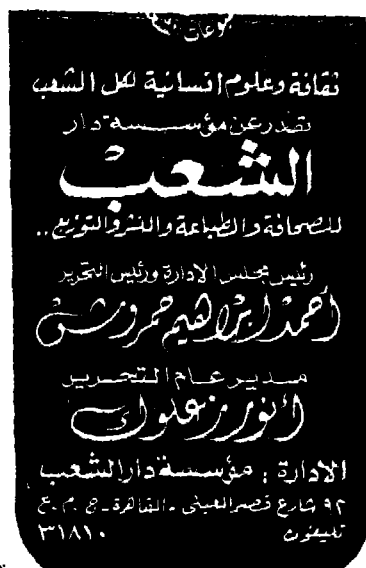 ثقافة وعلوم انسانية لكل الشعب
تصدر عن مؤسسة دار
الشعب
للصحافة والطباعة والنشر والتوزيع ..
رئيس مجلس الإدارة ورئيس التحرير
أحمد إبراهيم حمروش
مدير عام التحرير
أنور زعلوك
الادارة : مؤسسة دار الشعب
٩٢ شارع قصر العيني - القاهرة - ج . م . ع
تليفون ٣١٨١٠